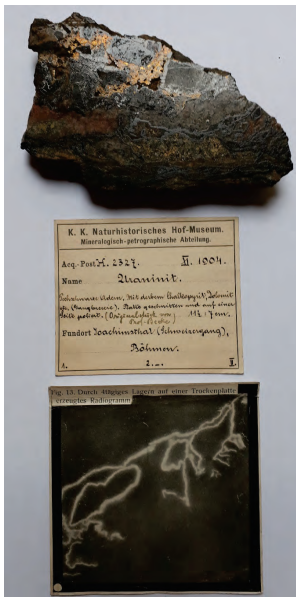 K. K. Naturhistorisches Hof-Museum.
Mineralogisch-petrographische Abteilung.
Acq.-Post H. 2327. XI. 1904.
Name Uraninit.
Adern, mit derbem Chalkopyrit, Dolomit
Platte geschnitten und auf einer
Seite poliert. (
Fundort Joachimsthal (Schweizergang),
Böhmen.
Fig. 13. Durch 4tägiges Lagern auf einer Trockenplatte
erzeugtes Radiogramm